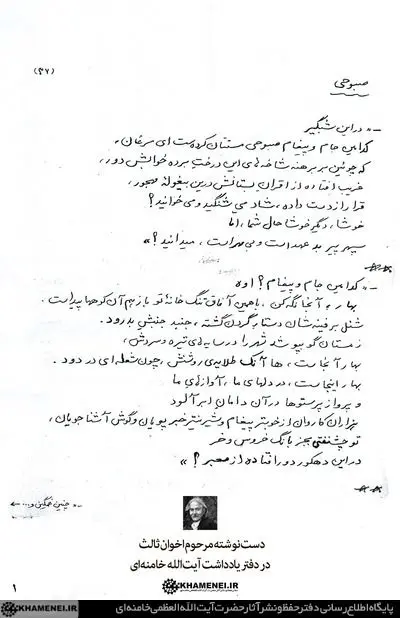 (۳۷)
صبوحی
ـ « در این شبگیر
کدامین جام و پیغام صبوحی مستتان کرده‌ست ای مرغان،
که چونین بر برهنه شاخه‌های این درخت برده خوابش دور،
غریب افتاده از اقران بستانش درین بیغولهٔ مهجور،
قرار از دست داده، شاد می‌شنگید و می‌خوانید؟
خوشا، دیگر خوشا حال شما، اما
سپهر پیر بد عهد است و بی‌مهر است، میدانید؟»
ـ « کدامین جام و پیغام؟ اوه
بهار، به آنجا نگه کن، با همین آفاق تنگ خانهٔ تو باز هم آن کوهها پیداست.
شنل برفینه‌شان دستار گردن گشته، جنبد جنبش بدرود.
زمستان گو بپوشد شهر را در سایه‌های تیره و سردش،
بهار آنجاست، ها آنک طلایه‌ی روشنش، چون شعله‌ای در دود.
بهار اینجاست، در دلهای ما، آوازهای ما
و پرواز پرستوها در آن دامان ابرآلود
هزاران کاروان از خوبتر پیغام و شیرینتر خبر پویان و گوش آشنا جویان،
تو چه شنفتی بجز بانگ خروس و خر
در این دهکور دور افتاده از معبر؟»
ـ « چنین غمگین و ... ←
دست‌نوشته مرحوم اخوان ثالث
در دفتر یادداشت آیت‌الله خامنه‌ای
KHAMENEI.IR
۱
KHAMENEI.IR
پایگاه اطلاع‌رسانی دفتر حفظ و نشر آثار حضرت آیت‌الله العظمی خامنه‌ای